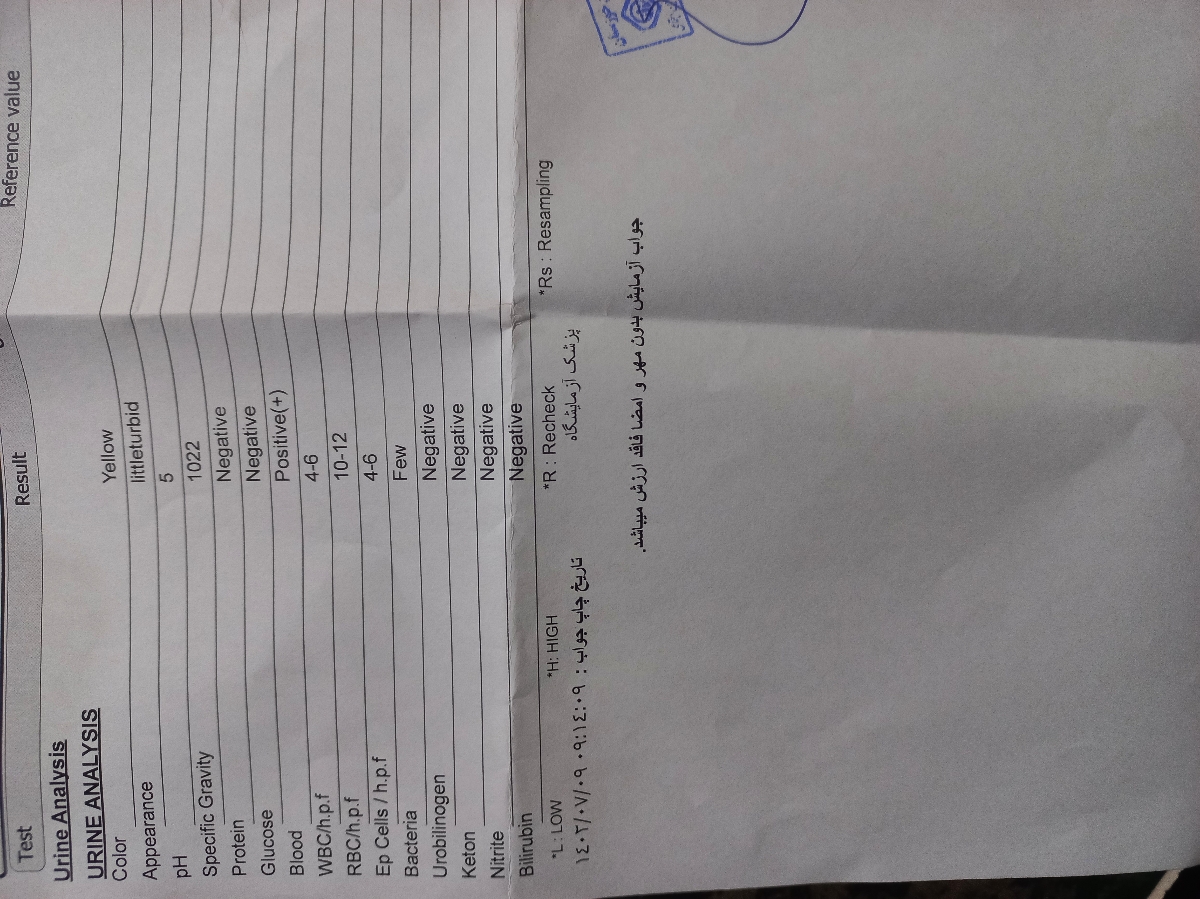 Test Result Reference value
Urine Analysis
URINE ANALYSIS
Color Yellow
Appearance littleturbid
pH 5
Specific Gravity 1022
Protein Negative
Glucose Negative
Blood Positive(+)
WBC/h.p.f 4-6
RBC/h.p.f 10-12
Ep Cells / h.p.f 4-6
Bacteria Few
Urobilinogen Negative
Keton Negative
Nitrite Negative
Bilirubin Negative
*L : LOW *H: HIGH *R : Recheck *Rs : Resampling
تاریخ چاپ جواب : ۰۹:۱٤:۰۹ ۱٤۰۲/۰۷/۰۹ پزشک آزمایشگاه
جواب آزمایش بدون مهر و امضا فاقد ارزش میباشد.